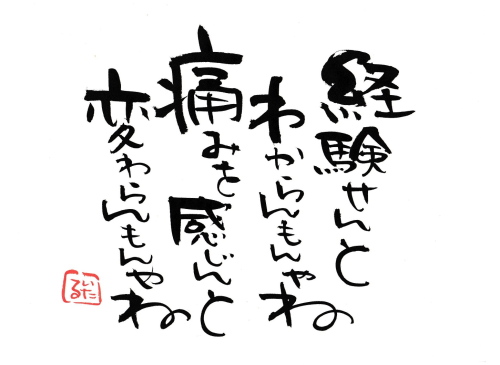 経験せんと
わからんもんやね
痛みを感じんと
変わらんもんやね